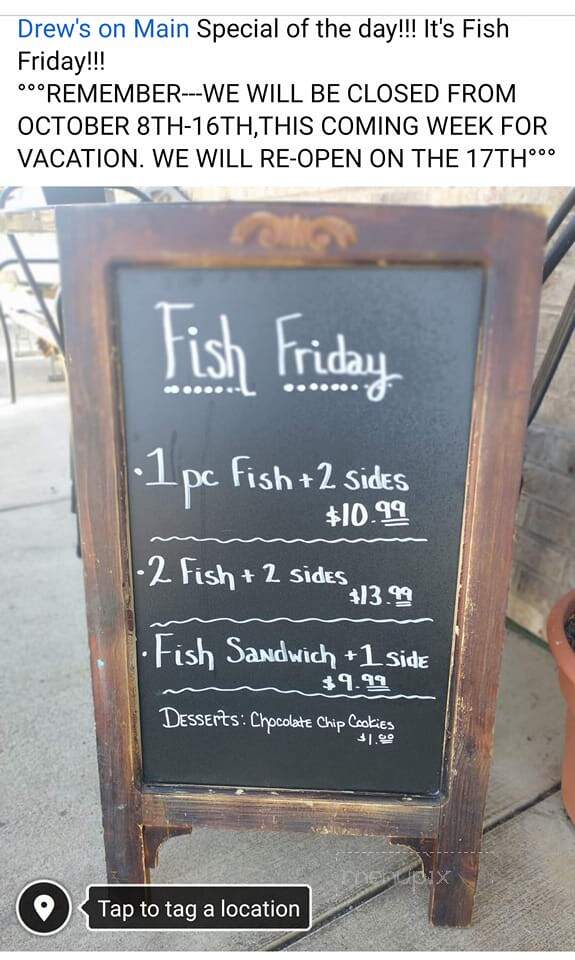 Drew's on Main Special of the day!!! It's Fish
Friday!!!
°°°REMEMBER---WE WILL BE CLOSED FROM
OCTOBER 8TH-16TH,THIS COMING WEEK FOR
VACATION. WE WILL RE-OPEN ON THE 17TH°°°
Fish Friday
·1pc Fish + 2 sides
$10.99
·2 Fish + 2 sides
$13.99
·Fish Sandwich + 1 side
$9.99
Desserts: Chocolate Chip Cookies
$1.00
menupix
Tap to tag a location